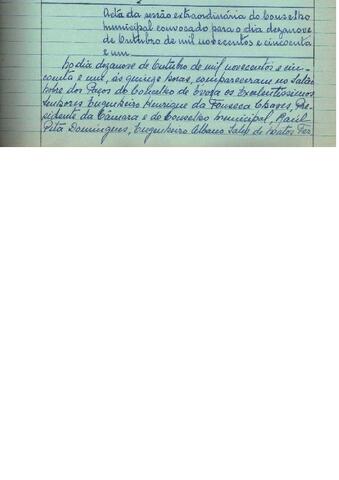 Acta da sessão extraordinária do Conselho
municipal convocado para o dia dezanove
de Outubro de mil novecentos e cincoenta
e um
No dia dezanove de Outubro de mil novecentos e cin-
coenta e um, ás quinze horas, compareceram no Salão
Nobre dos Paços do Concelho de Évora os Excelentissimos
Senhores Engenheiro Henrique da Fonseca Chaves, Pre-
sidente da Câmara e do Conselho Municipal, Raúl
Pita Domingues, Engenheiro Albano de Matos Fer